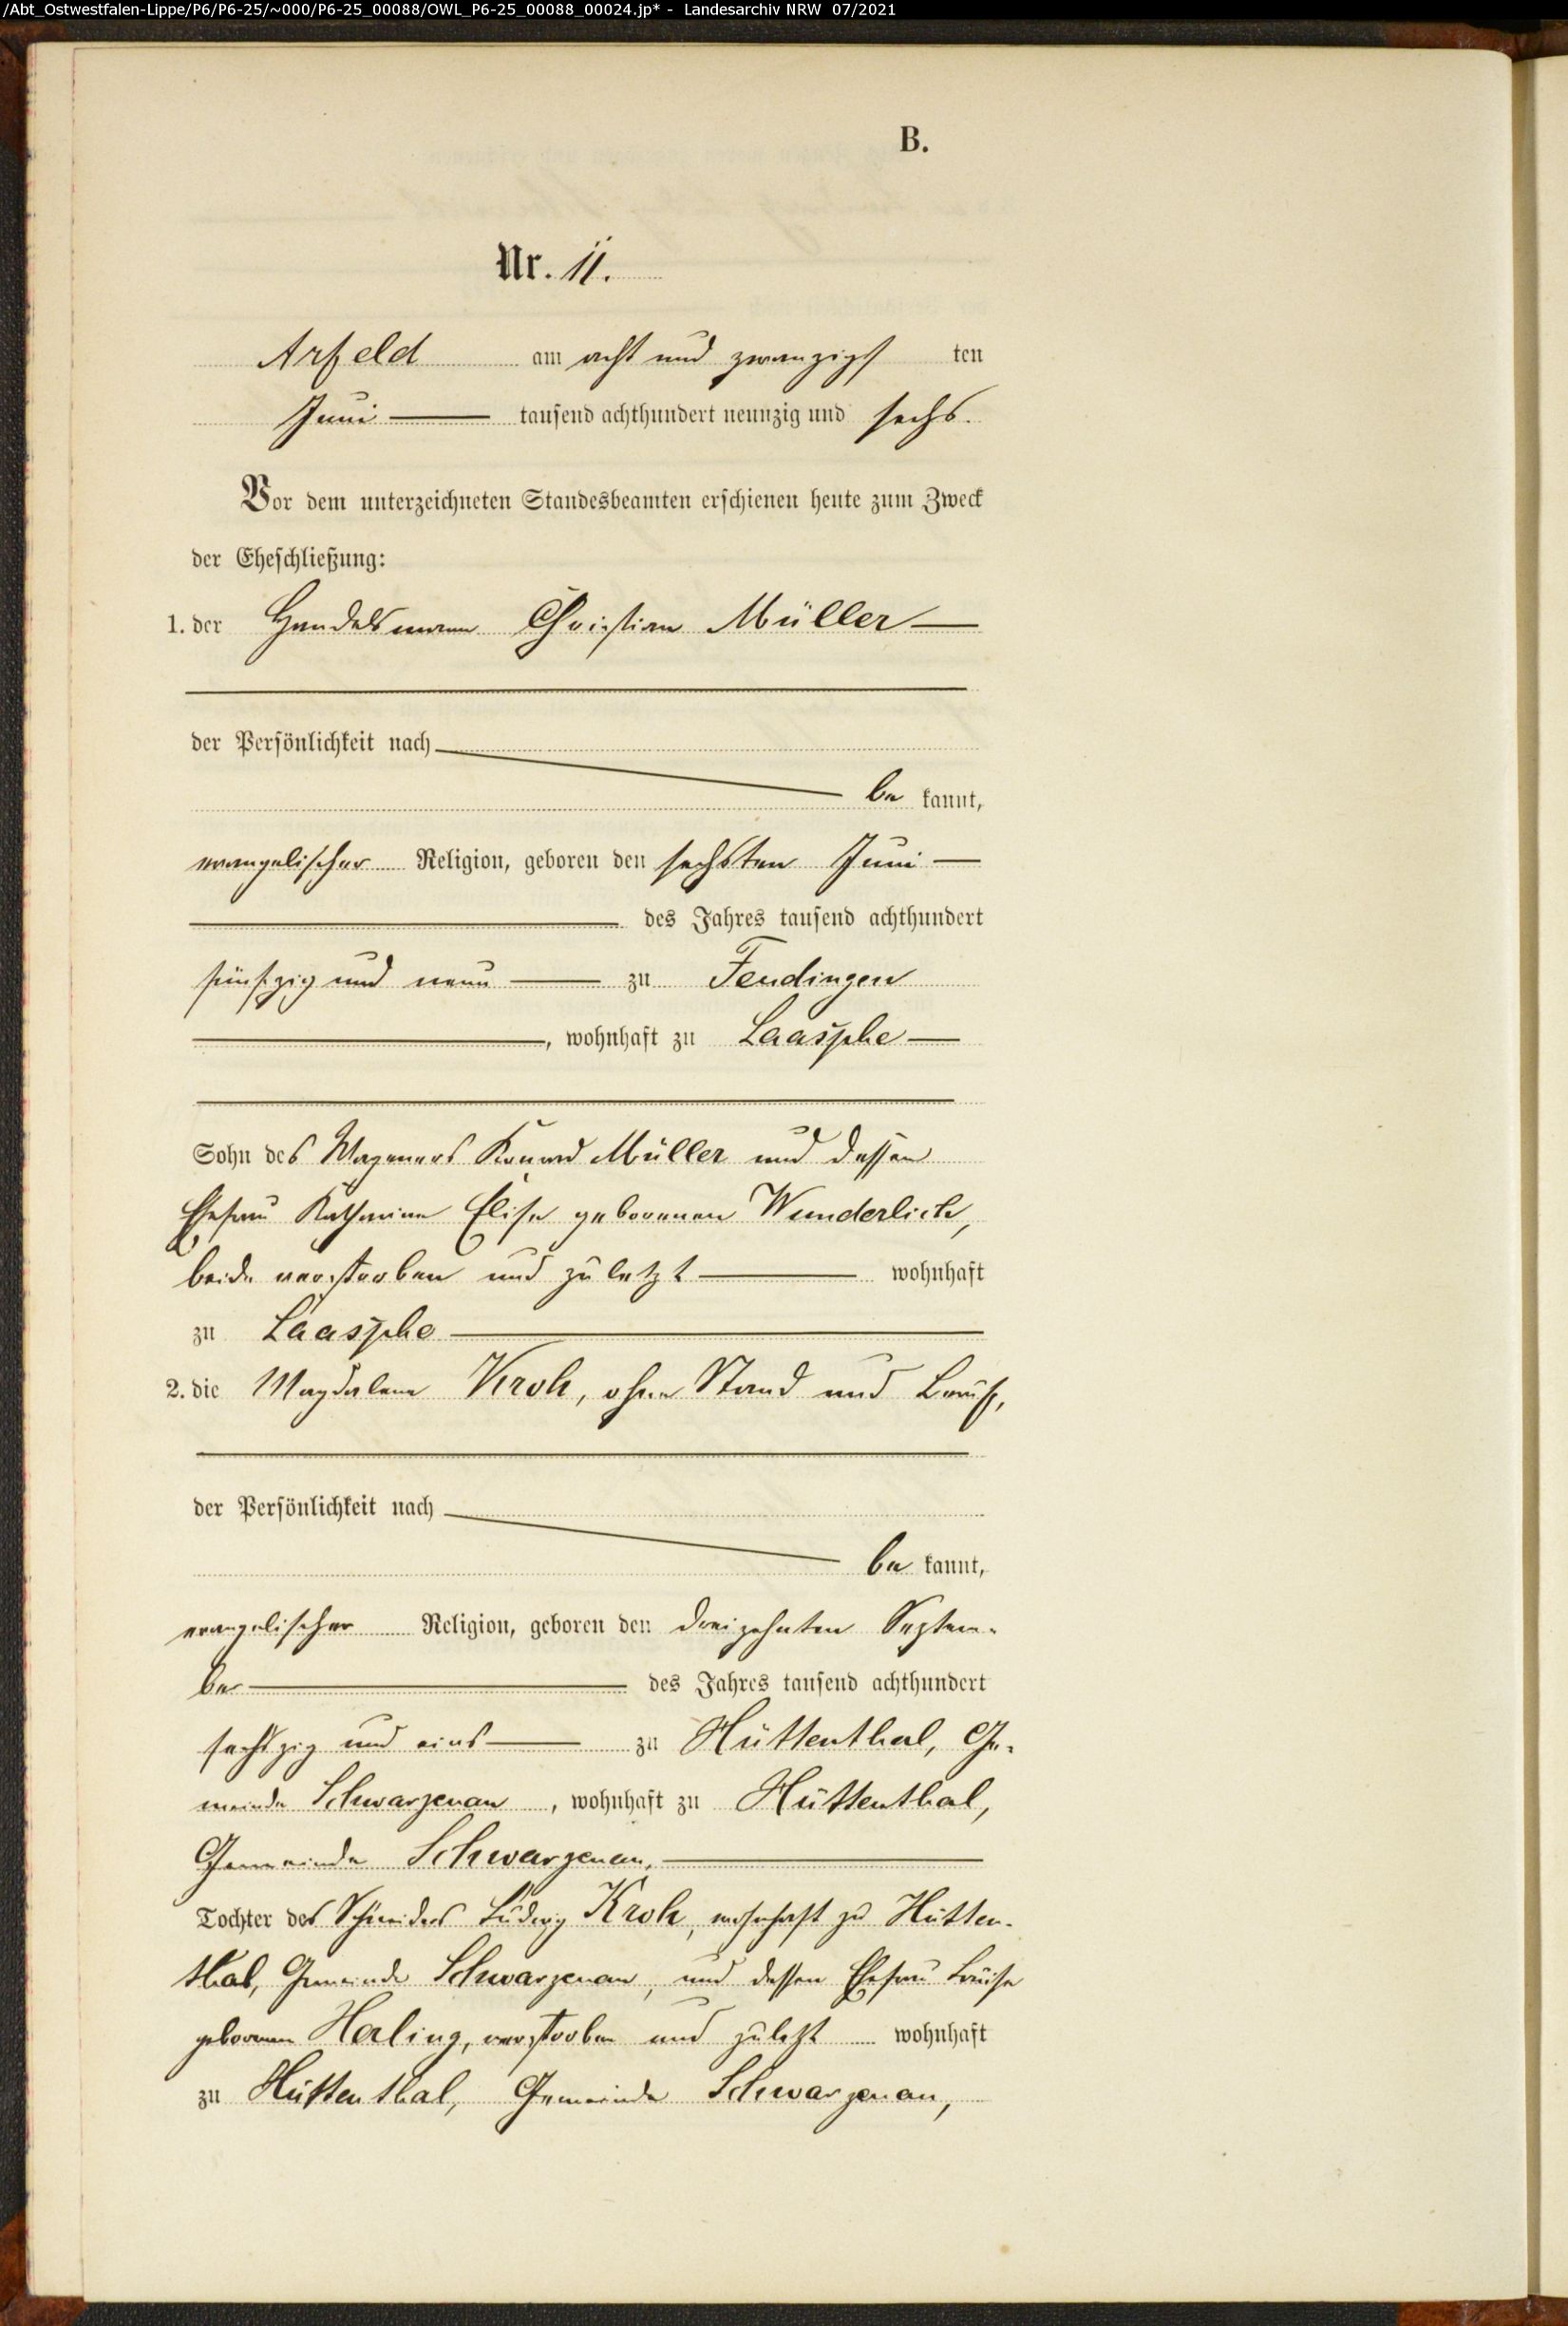 /Abt_Ostwestfalen-Lippe/P6/P6-25/~000/P6-25_00088/OWL_P6-25_00088_00024.jp* - Landesarchiv NRW 07/2021
B.
Nr. 11.
Arfeld am acht und zwanzigsten
Juni tausend achthundert neunzig und sechs.
Vor dem unterzeichneten Standesbeamten erschienen heute zum Zweck
der Eheschließung:
1. der Handelsmann Christian Müller
der Persönlichkeit nach
be kannt,
evangelischer Religion, geboren den sechsten Juni
des Jahres tausend achthundert
fünfzig und neun zu Feudingen
, wohnhaft zu Laasphe
Sohn des Wageners Konrad Müller und dessen
Ehefrau Katharine Elise geborenen Wunderlich,
beide verstorben und zuletzt wohnhaft
zu Laasphe
2. die Magdalene Kroh, ohne Stand und Beruf,
der Persönlichkeit nach
be kannt,
evangelischer Religion, geboren den dreizehnten Septem-
ber des Jahres tausend achthundert
sechszig und eins zu Hüttenthal, Ge-
meinde Schwarzenau, wohnhaft zu Hüttenthal,
Gemeinde Schwarzenau,
Tochter des Schneiders Ludwig Kroh, wohnhaft zu Hütten-
thal, Gemeinde Schwarzenau, und dessen Ehefrau Louise
geborenen Hading, verstorben und zuletzt wohnhaft
zu Hüttenthal, Gemeinde Schwarzenau,